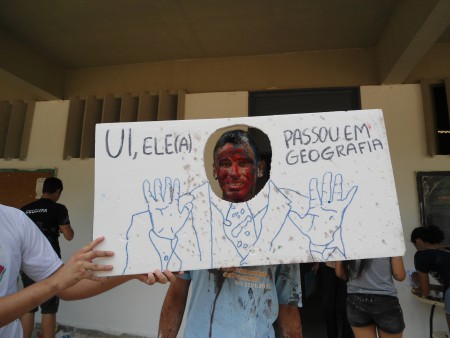 UI, ELE(A)
PASSOU EM
GEOGRAFIA